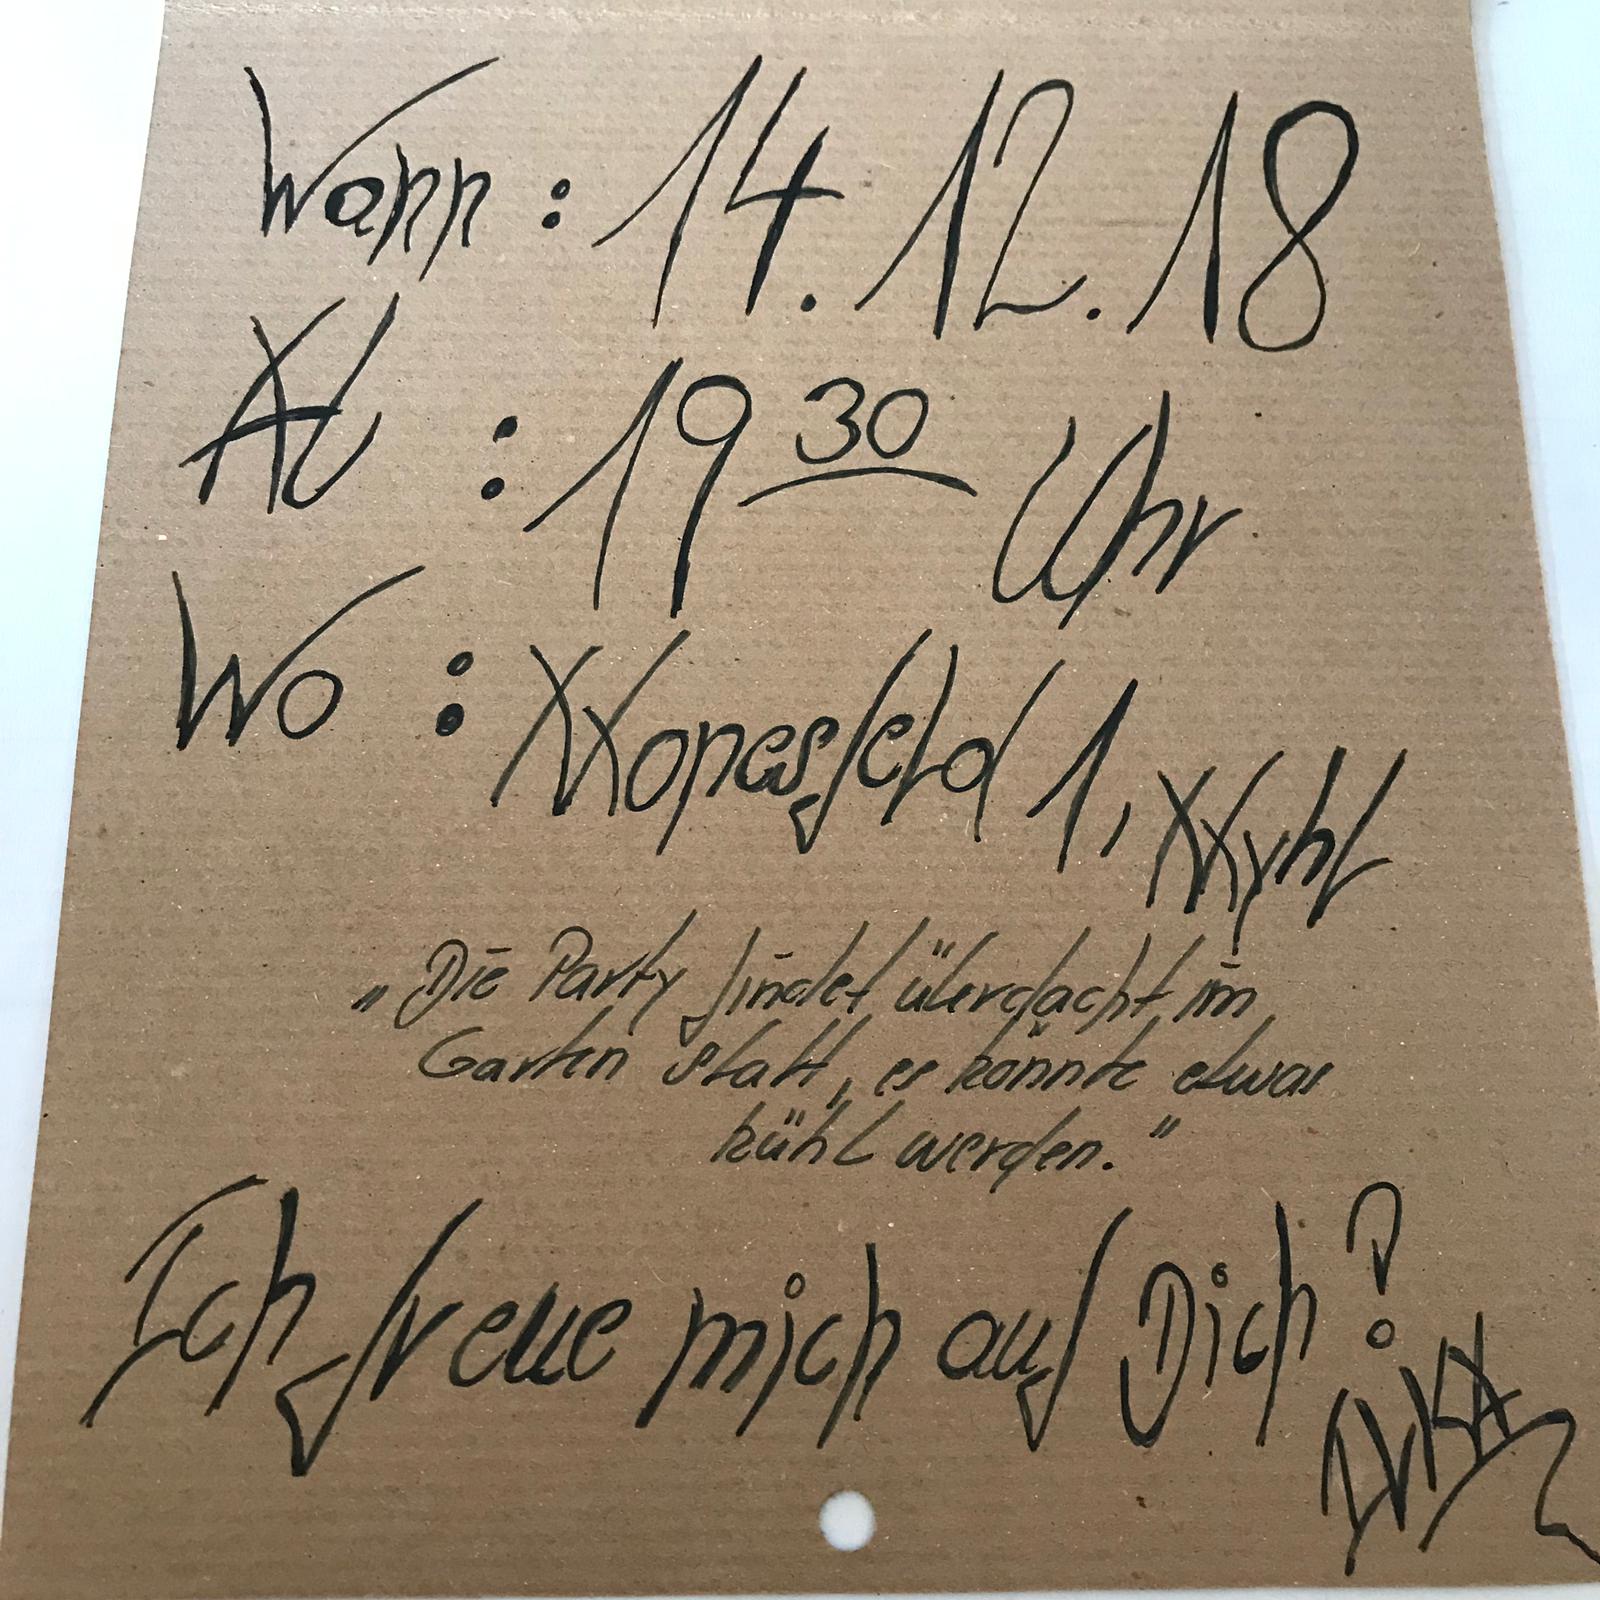 Wann : 14.12.18
Ab : 19 30 Uhr
Wo : XXopesfeld 1, XXyhl
„Die Party findet überdacht im
Garten statt, es könnte etwas
kühl werden."
Ich freue mich auf Dich!